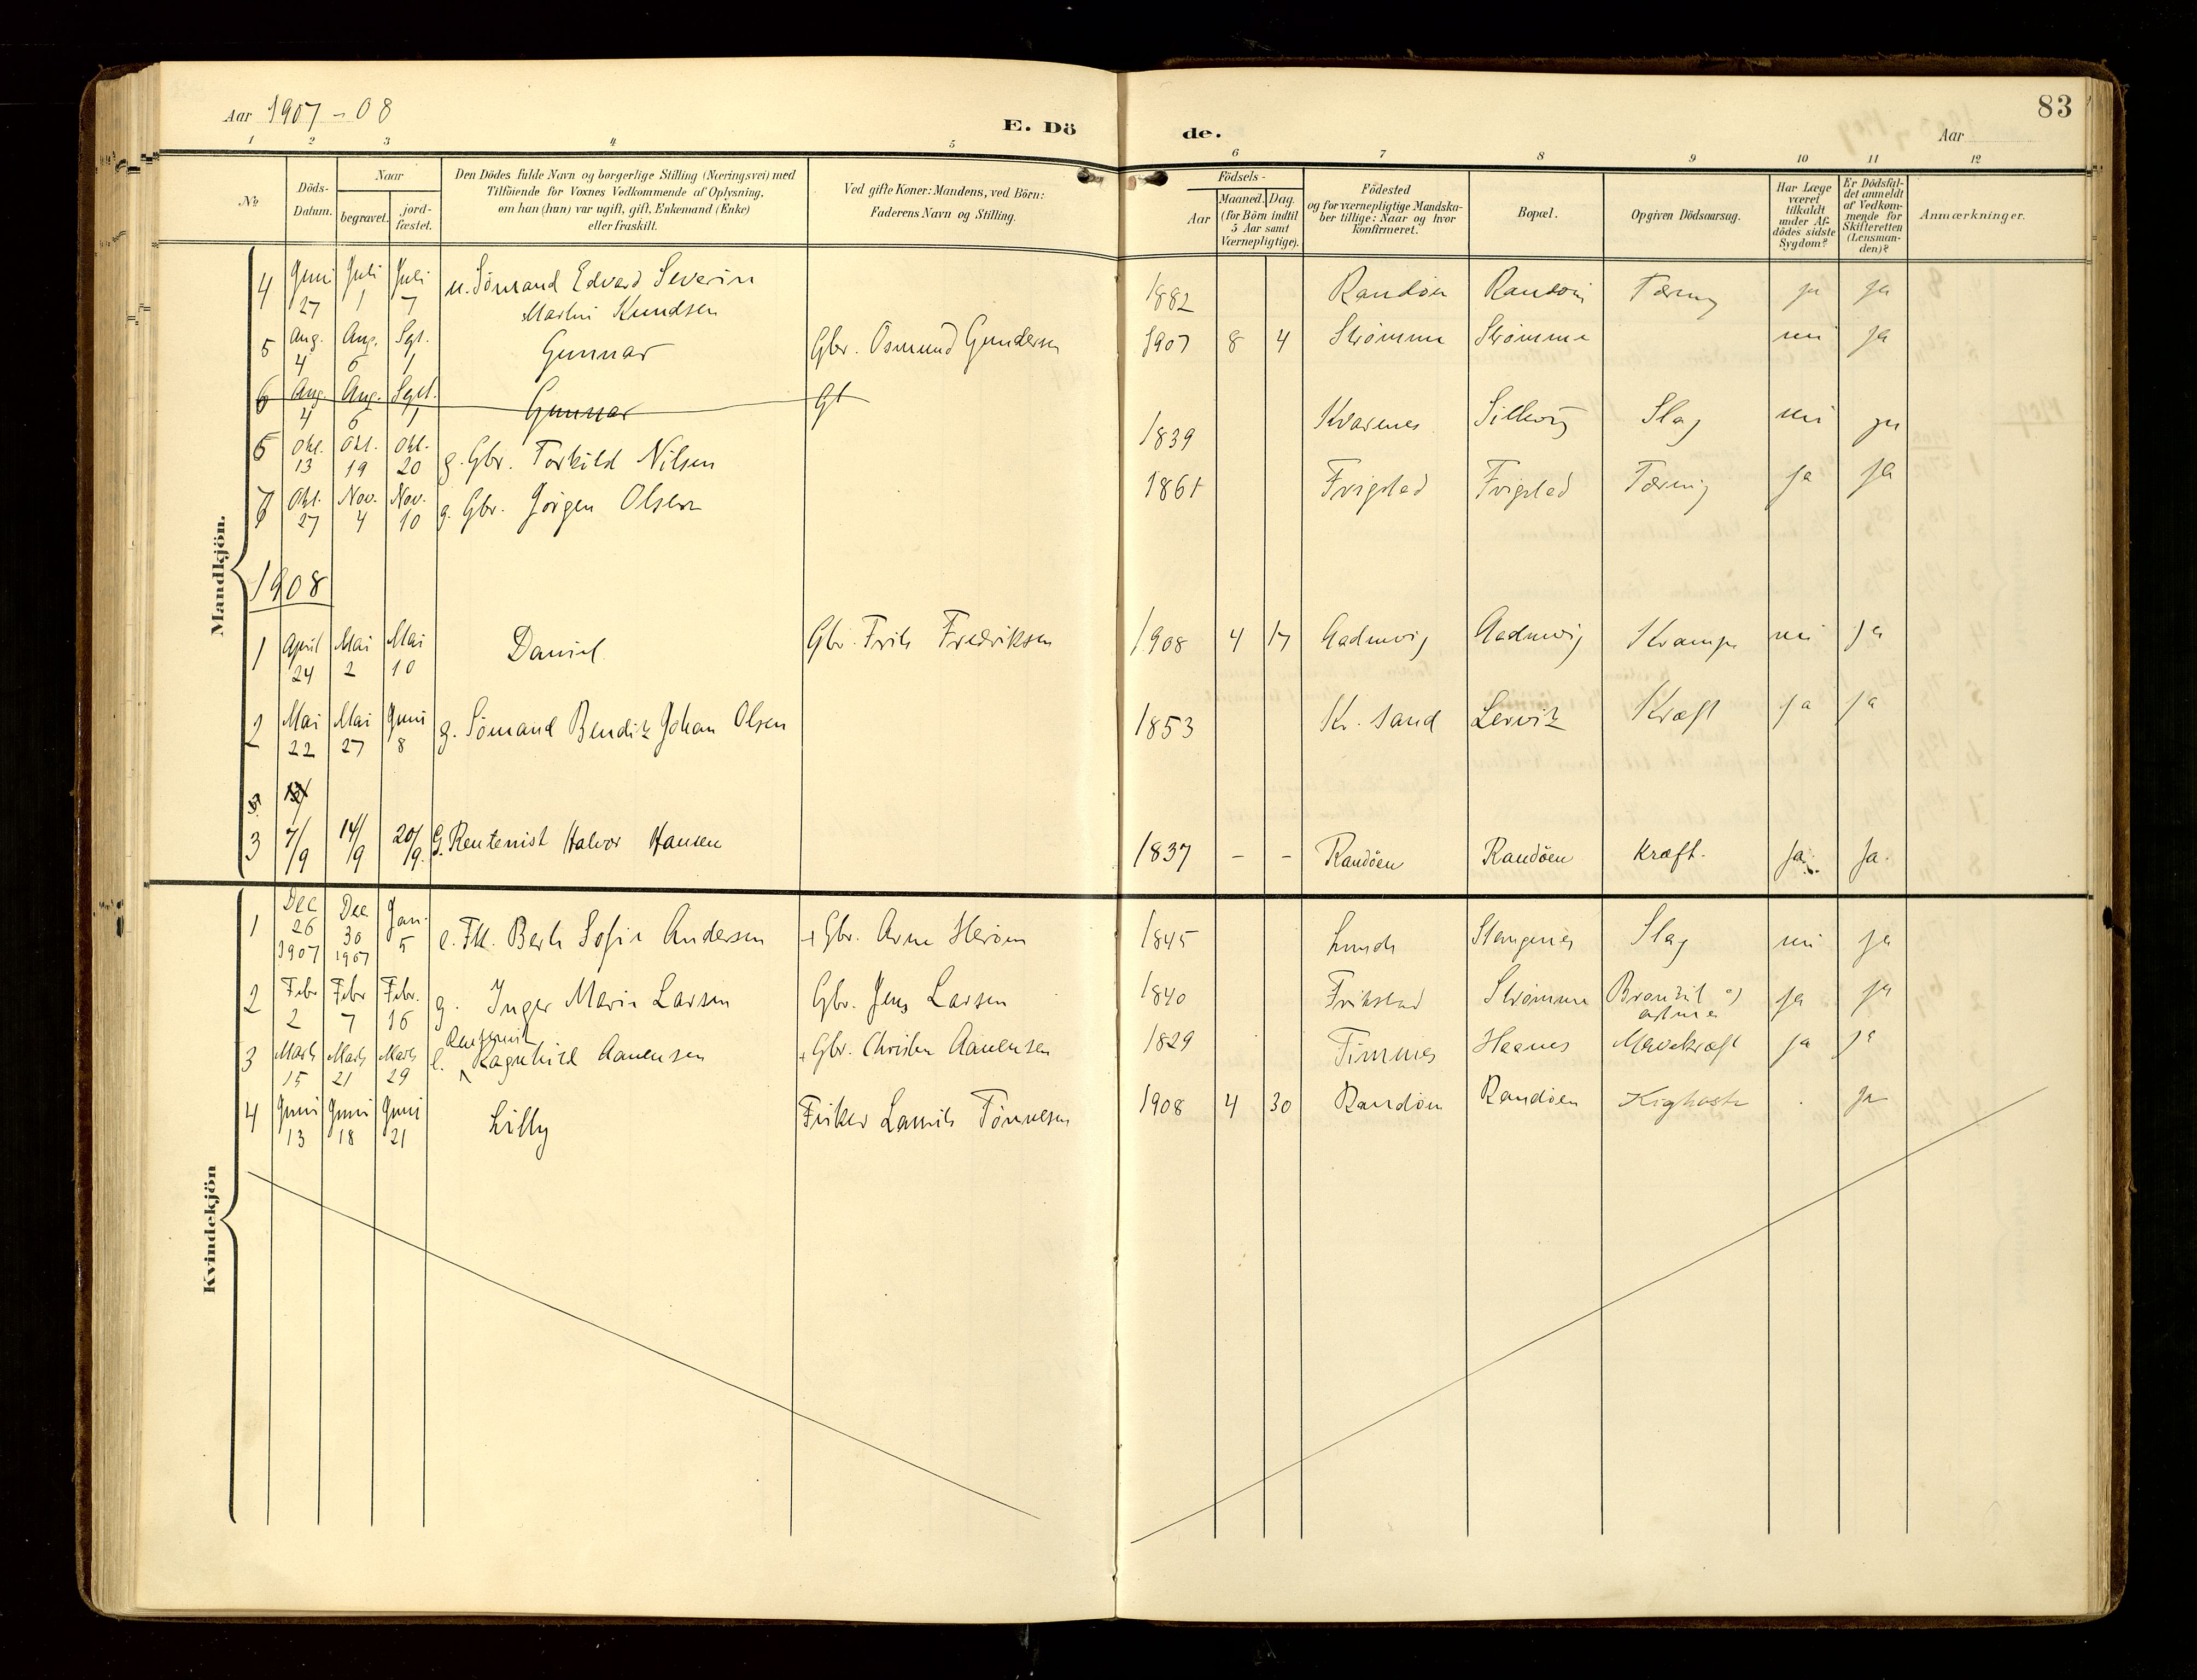 Aar 1907-08 E. Dö de. Aar 83
1 2 3 4 5 6 7 8 9 10 11 12
No Döds-Datum. Naar begravet. jord-fæstet. Den Dödes fulde Navn og borgerlige Stilling (Næringsvei) med Tilföiende for Voxnes Vedkommende af Oplysning, om han (hun) var ugift, gift, Enkemand (Enke) eller fraskilt. Ved gifte Koner: Mandens, ved Börn: Faderens Navn og Stilling. Födsels- Aar Maaned. Dag. (for Börn indtil 5 Aar samt Værnepligtige). Födested og for værnepligtige Mandska-ber tillige: Naar og hvor konfirmeret. Bopæl. Opgiven Dödsaarsag. Har Læge været tilkaldt under Af-dödes sidste Sygdom? Er Dödsfal-det anmeldt af Vedkom-mende for Skifteretten (Lensman-den)? Anmærkninger.
Mandkjön.
4 Juni 27 Juli 1 Juli 7 u. Sömand Edvard Severin Martin Knudsen 1882 Randöen Randöen Tæring ja ja
5 Aug. 4 Aug. 6 Sept. 1 Gunnar Gbr. Osmund Gundersen 1907 8 4 Strömme Strömme nei ja
6 Aug. 4 Aug. 6 Sept. 1 Gunnar Gb
6 Okt. 13 Okt. 19 Okt. 20 g. Gbr. Torkild Nilsen 1839 Kvarenes Slag nei ja
7 Okt. 27 Nov. 4 Nov. 10 g. Gbr. Jörgen Olsen 1861 Frigstad Frigstad Tæring ja ja
1908
1 April 24 Mai 2 Mai 10 Daniel Gbr. Frits Fredriksen 1908 4 17 Krampe nei ja
2 Mai 22 Mai 27 Juni 8 g. Sömand Bendix Johan Olsen 1853 Kr. sand Kræft ja ja
3 7/9 14/9 20/9. G. Rentenist Halvor Hansen 1837 - - Randöen Randöen Kræft. Ja. Ja.
Kvindekjön
1 Dec 26 1907 Dec 30 1907 Jan. 5 e. Fk. Berte Sofie Andersen + Gbr. Arne Heröen 1845 Lunde Stangenes Slag nei ja
2 Febr 2 Febr 7 Febr. 16 g. Inger Marie Larsen Gbr. Jens Larsen 1840 Frikstad Strömme ja ja
3 Marts 15 Marts 21 Marts 29 e. Ragnhild Aanensen + Gbr. Christen Aanensen 1829 Timmes Haanes Mavekræft ja ja
4 Juni 13 Juni 18 Juni 21 Lilly Fisker Laurits Tönnesen 1908 4 30 Randöen Randöen Kighoste ja